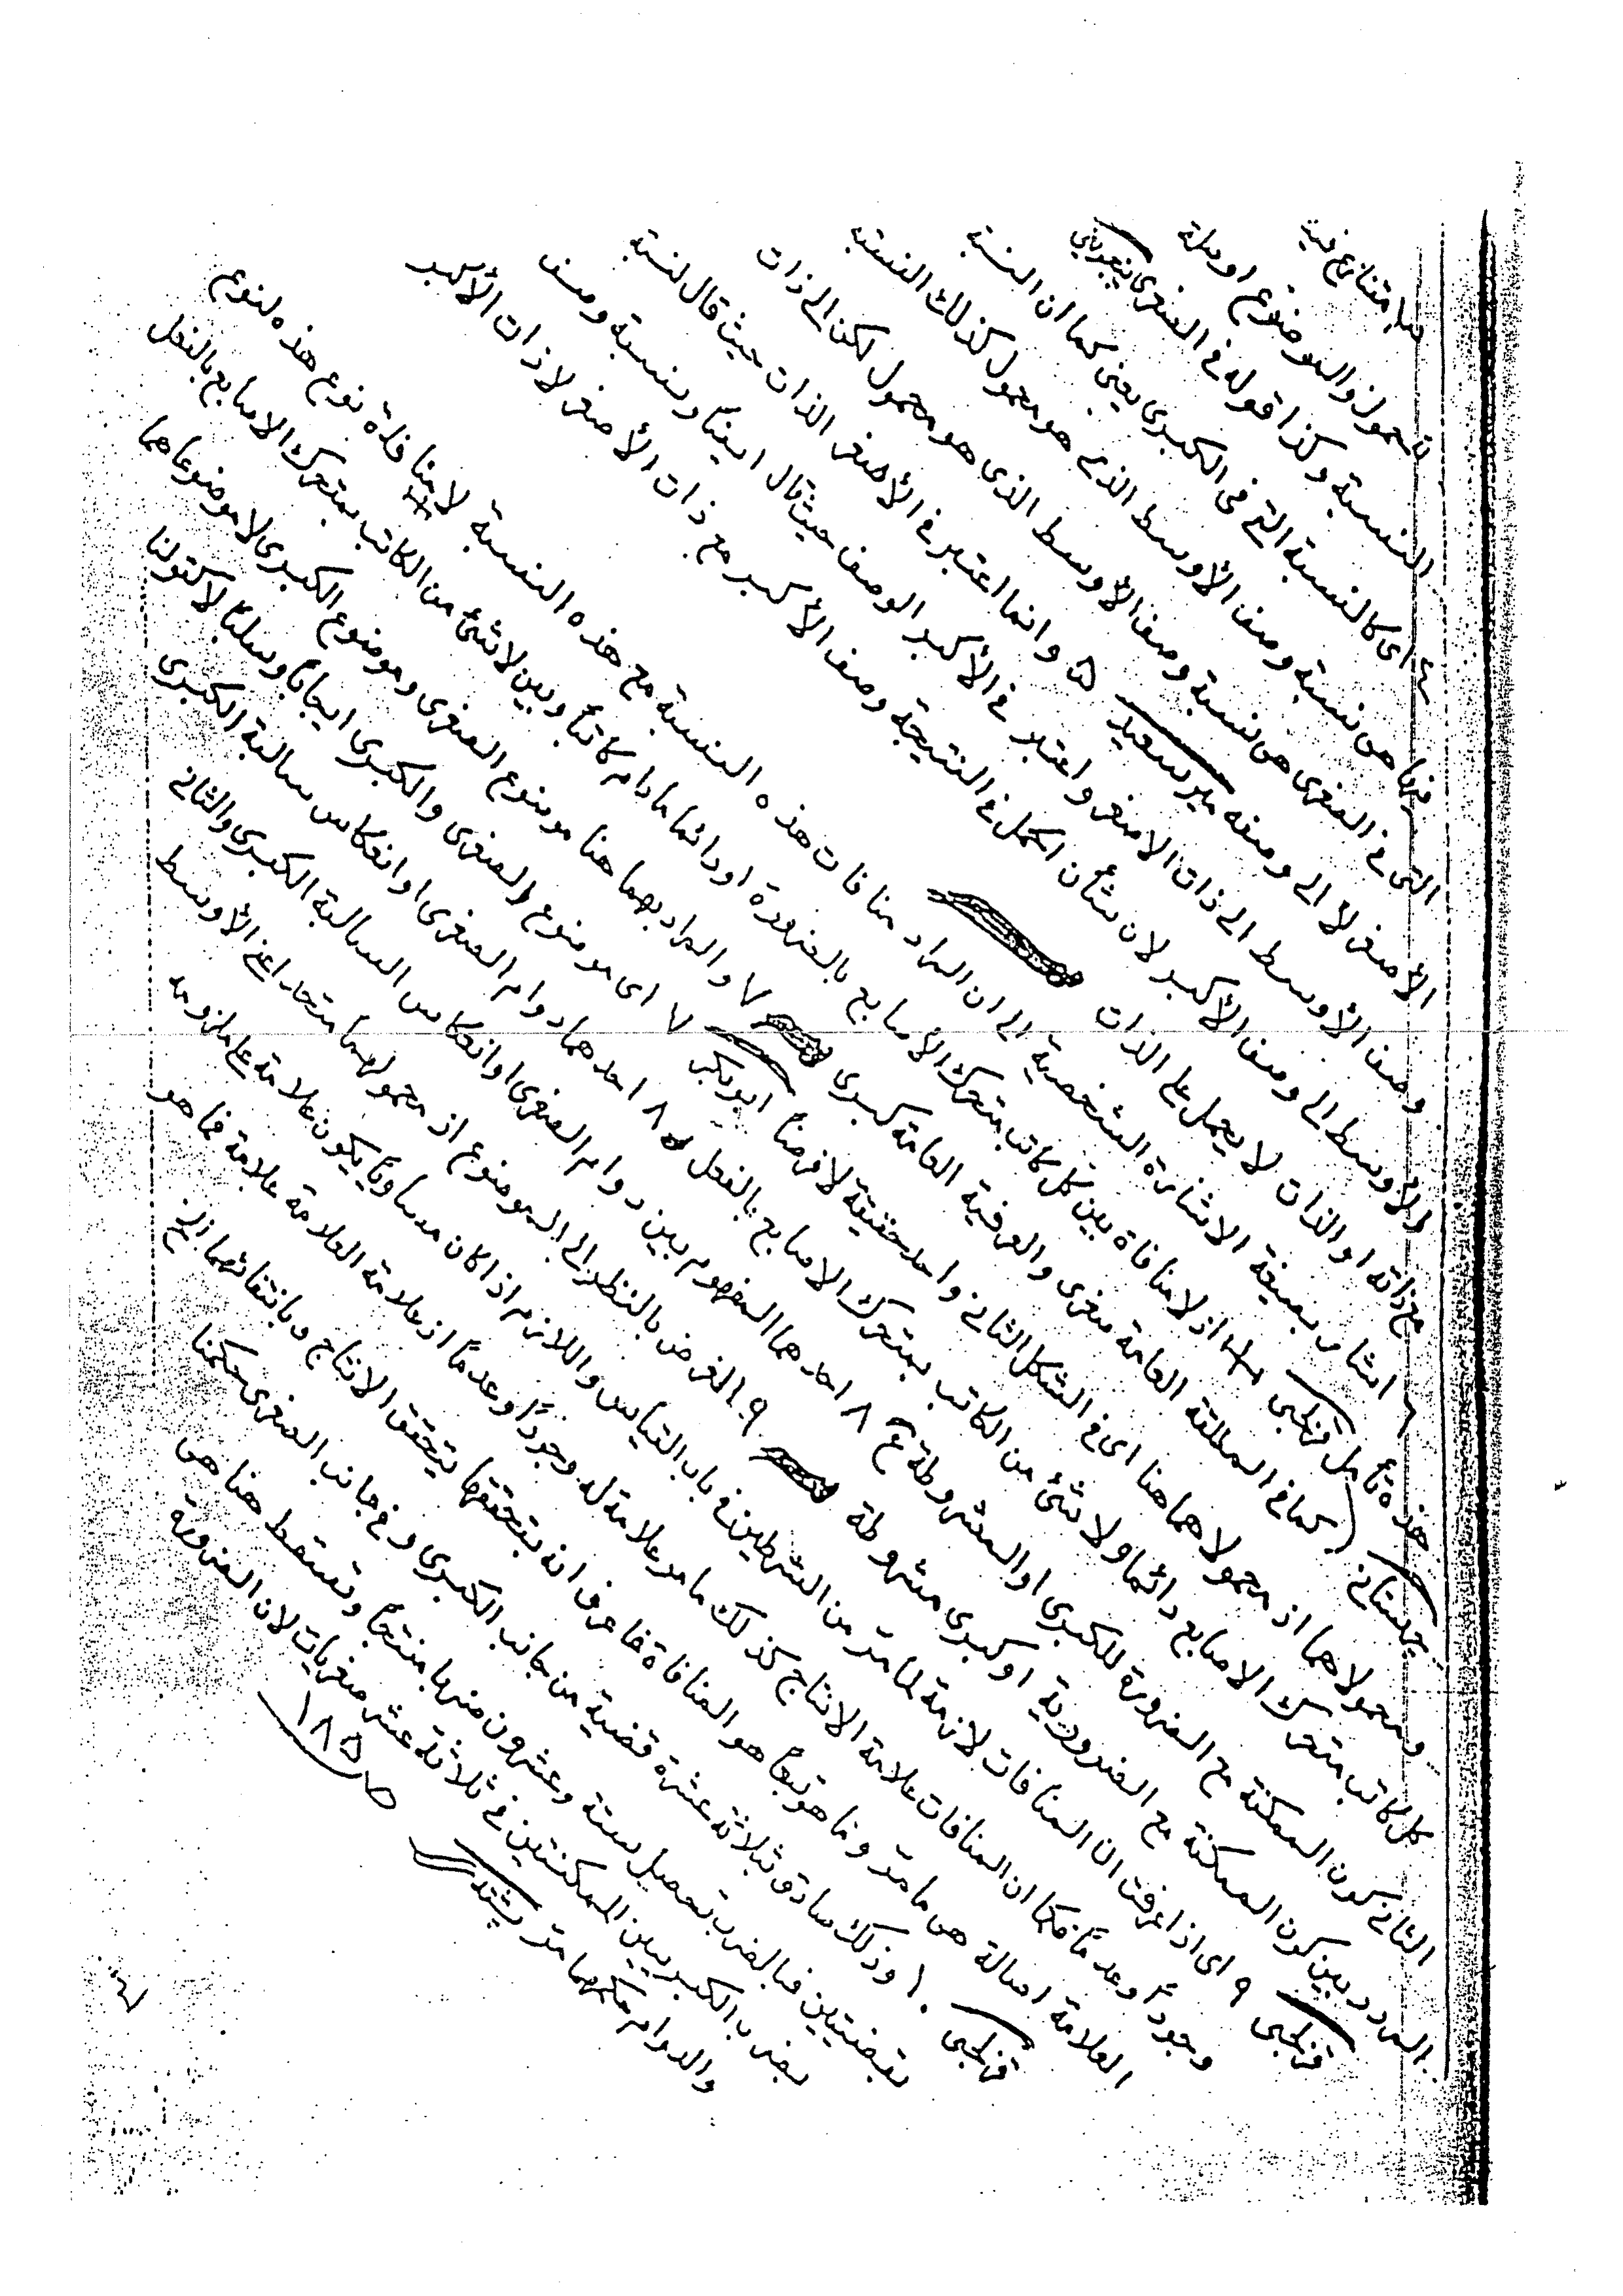 متنازع فيه
المحمول والموضوع او صلة
النسبة وكذا قوله في الصغرى پنجوینی
اى كالنسبة التي في الكبرى يعني كما ان النسبة
فيها هي نسبة وصف الأوسط الذي هو محمول كذلك النسبة
التي في الصغرى هي نسبة وصف الأوسط الذي هو محمول لكن الى ذات
الأصغر لا الى وصفه ميرسعيد ۵ وانما اعتبر في الأصغر الذات حيث قال لنسبة
وصف الأوسط الى ذات الاصغر واعتبر في الأكبر الوصف حيث قال ايضاً ونسبة وصف
الأوسط الى وصف الأكبر لان شأن الحمل في النتيجة وصف الأكبر مع ذات الأصغر لا ذات الأكبر
مع ذاته او الذات لا يحمل على الذات
٦ اشار بصيغة الاشارة الشخصية الى ان المراد منافات هذه النسبة مع هذه النسبة لا منافاة نوع هذه لنوع
هذه تأمل قزلجى اذ لا منافاة بين كل كاتب متحرك الأصابع بالضرورة او دائما مادام كاتباً وبين لا شئ من الكاتب بمتحرك الاصابع بالفعل
(كما في المطلقة العامة صغرى والعرفية العامة كبرى ٧ والمراد بهما هنا موضوع الصغرى وموضوع الكبرى لا موضوعاهما
ومحمولاهما اذ محمولاهما هنا اى في الشكل الثاني واحد حقيقة لا فرضاً ابوبكر ٧ اى موضوع الصغرى والكبرى ايجاباً وسلباً لا كقولنا
كل كاتب متحرك الاصابع دائما ولا شئ من الكاتب بمتحرك الاصابع بالفعل ٨ احدهما دوام الصغرى او انعكاس سالبة الكبرى
الثاني كون الممكنة مع الضرورة للكبرى او المشروطة ع ٨ احدهما المفهوم بين دوام الصغرى او انعكاس السالبة الكبرى والثاني
المردد بين كون الممكنة مع الضرورية او كبرى مشروطة ٩ الغرض بالنظر الى الموضوع اذ محمولهما متحد اعني الأوسط
قزلجى ٩ اى اذا عرفت ان المنافات لازمة لما مرّ من الشرطين في باب القياس واللازم اذا كان مساوياً يكون علامة على ملزومه
وجوداً وعدماً فكما ان المنافات علامة الانتاج كذلك ما مر علامة له وجوداً وعدماً اذ علامة العلامة علامة فما هو
العلامة اصالة هي ما مرّ وما هو تبعاً هو المنافاة فاعرف انه بتحققها يتحقق الانتاج وبانتفائها الخ
قزلجى ١٠ وذلك صادق بثلاثة عشرة قضية من جانب الكبرى وفي جانب الصغرى ممكنا
بقضيتين فبالضرب تحصيل ستة وعشرون منها منتجاً وتسقط هنا هي
بضرب الكبريين الممكنتين في ثلاثة عشر صغريات لان الضرورة
والدوام حكمهما مرّ پشتدرى ص ١٨۵